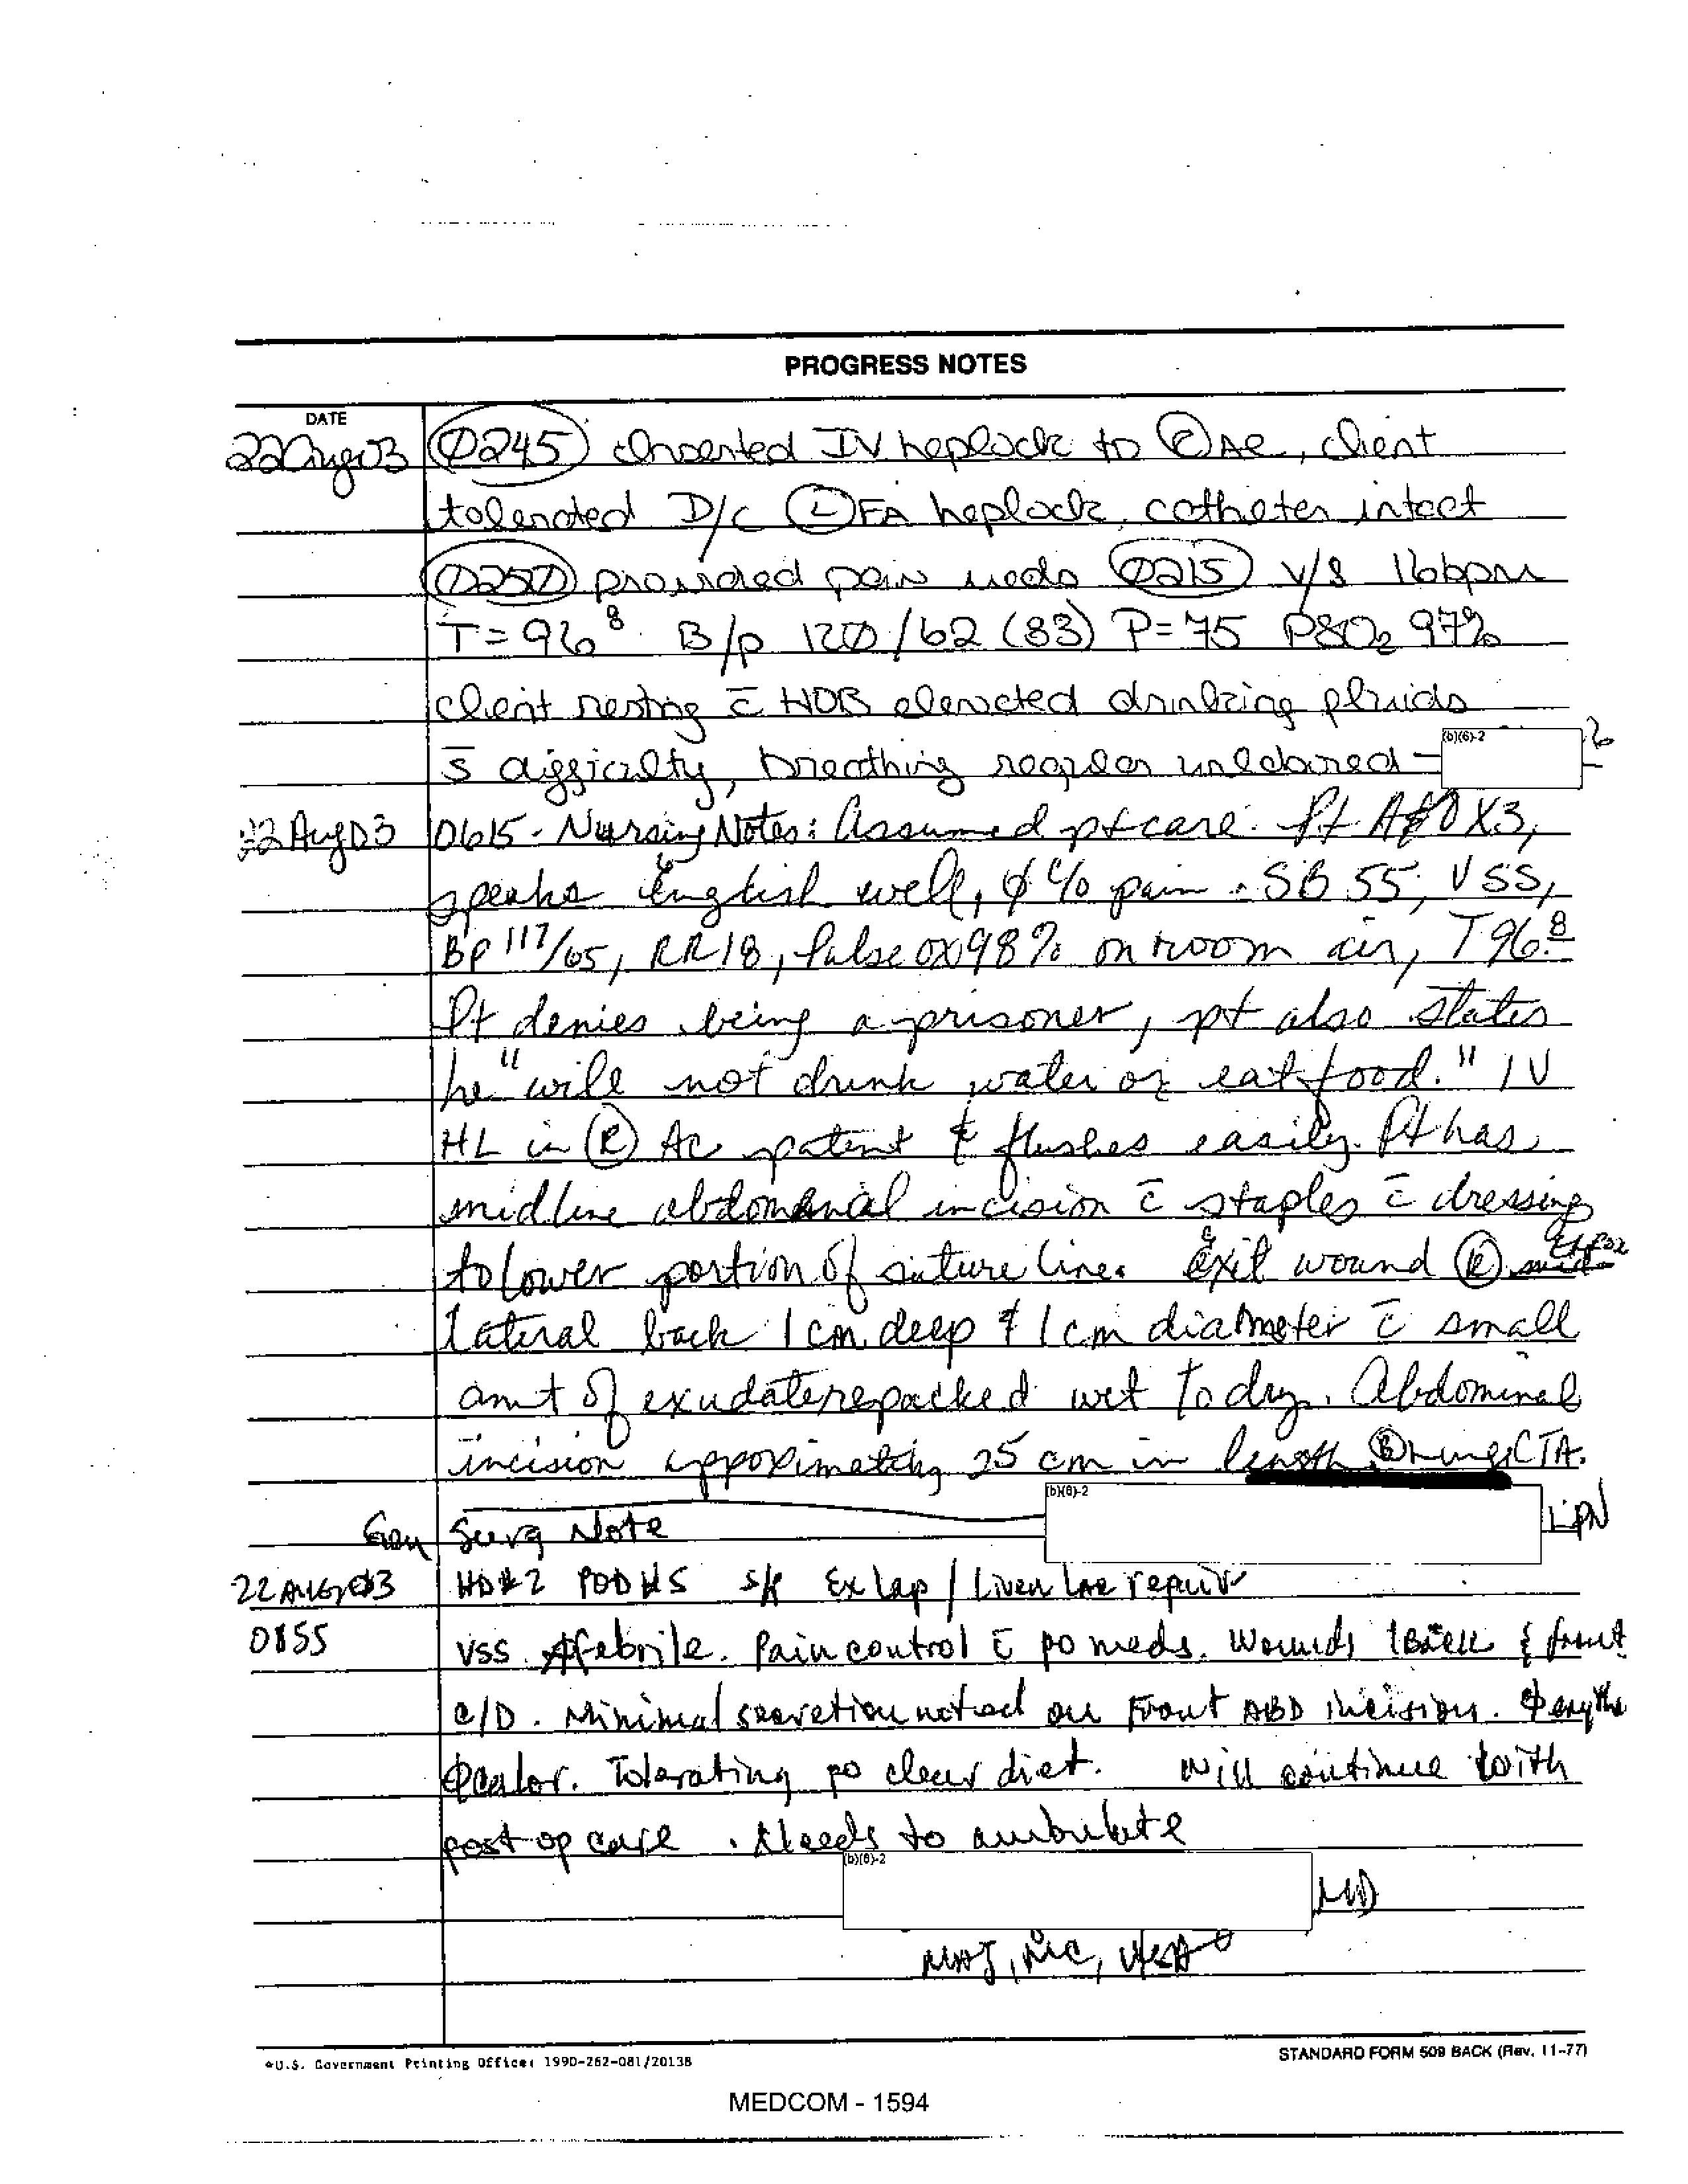 PROGRESS NOTES
DATE
22Aug03 0245 Inserted IV heplock to Ⓡ AC, client
tolerated D/C Ⓛ FA heplock, catheter intact
0250 provided pain meds 0215 V/S 16bpm
T=96⁸ B/p 120/62 (83) P=75 PSO₂ 97%
client resting c̄ HOB elevated drinking fluids
s̄ difficulty, breathing regular unlabored –
(b)(6)-2
22 Aug 03 0615 - Nursing Notes: Assumed pt care. Pt A&OX3,
speaks English well, ∅ c/o pain. SB 55, VSS,
BP 117/65, RR18, Pulse ox 98% on room air, T96.8
Pt denies being a prisoner, pt also states
he "will not drink water or eat food." IV
HL in Ⓡ AC patent & flushes easily. Pt has
midline abdominal incision c̄ staples c̄ dressing
to lower portion of suture line. Exit wound Ⓡ
lateral back 1cm deep & 1cm diameter c̄ small
amt of exudate repacked wet to dry. Abdominal
incision approximating 25 cm in length. Ⓑ Lungs CTA.
(b)(6)-2 LPN
Gen Surg Note
22AUG03 HD#2 POD#5 s/p Ex lap / Liver lac repair
0855 VSS. Afebrile. Pain control c̄ po meds. Wounds back & front
c/D. Minimal secretion noted on Front ABD incision. ∅ eryth
∅ calor. Tolerating po clear diet. Will continue with
post op care. Needs to ambulate
(b)(6)-2 MD
MAJ, MC, USA
*U.S. Government Printing Office: 1990-262-081/20138
STANDARD FORM 509 BACK (Rev. 11-77)
MEDCOM - 1594